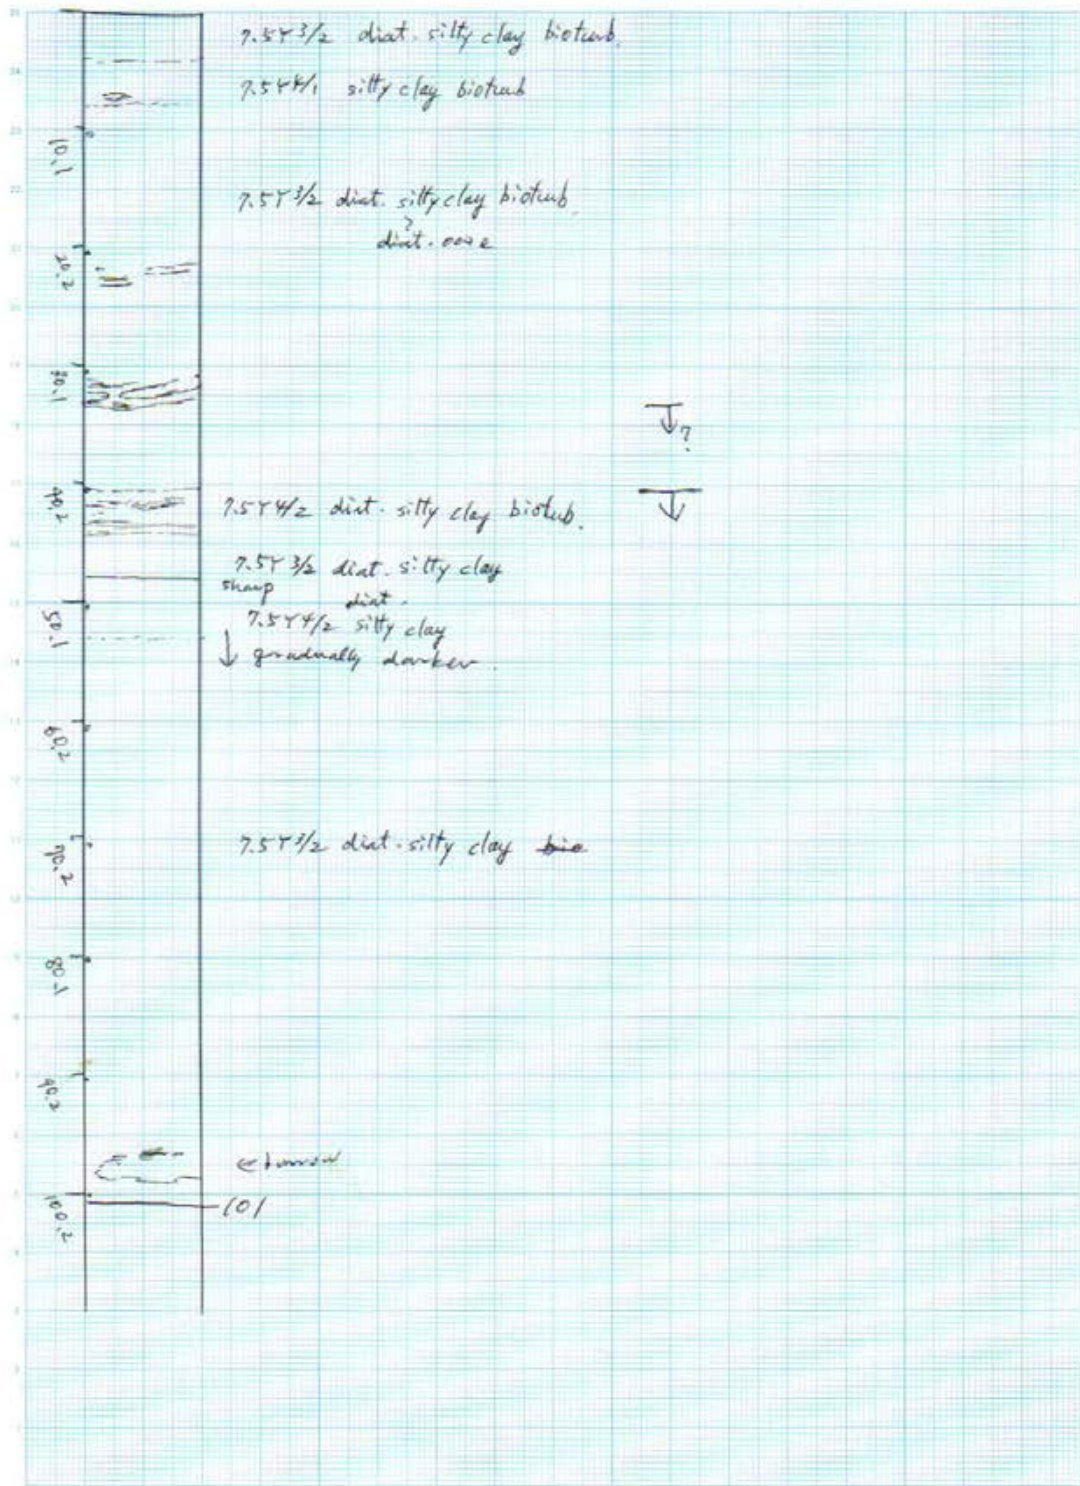 7.5Y 3/2 diat. silty clay bioturb.
7.5Y 4/1 silty clay bioturb
10.1
7.5Y 3/2 diat. silty clay bioturb.
?
diat. ooze
20.2
30.1
?
40.2
7.5Y 4/2 diat. silty clay bioturb.
7.5Y 3/2 diat. silty clay
sharp
diat.
7.5Y 4/2 silty clay
50.1
↓ gradually darker.
60.2
70.2
7.5Y 3/2 diat. silty clay bio
80.1
90.2
← burrow
100.2
101